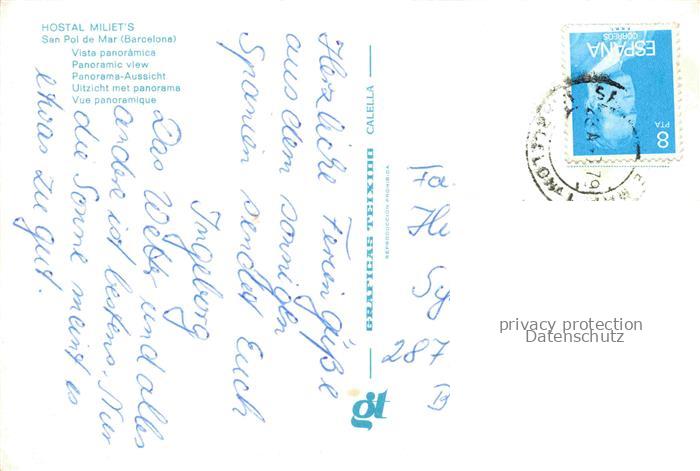 HOSTAL MILIET'S
San Pol de Mar (Barcelona)
Vista panorámica
Panoramic view
Panorama-Aussicht
Uitzicht met panorama
Vue panoramique
Herzliche Feriengrüße
aus dem sonnigen
Spanien sendet Euch
Ingeborg
Das Wetter und alles
andere ist bestens. Nur
die Sonne meint es
etwas zu gut.
GRAFICAS TEIXIDO CALELLA
REPRODUCCION PROHIBIDA
gt
Fa.
He
287
ESPAÑA
CORREOS
8 PTA
79
privacy protection
Datenschutz